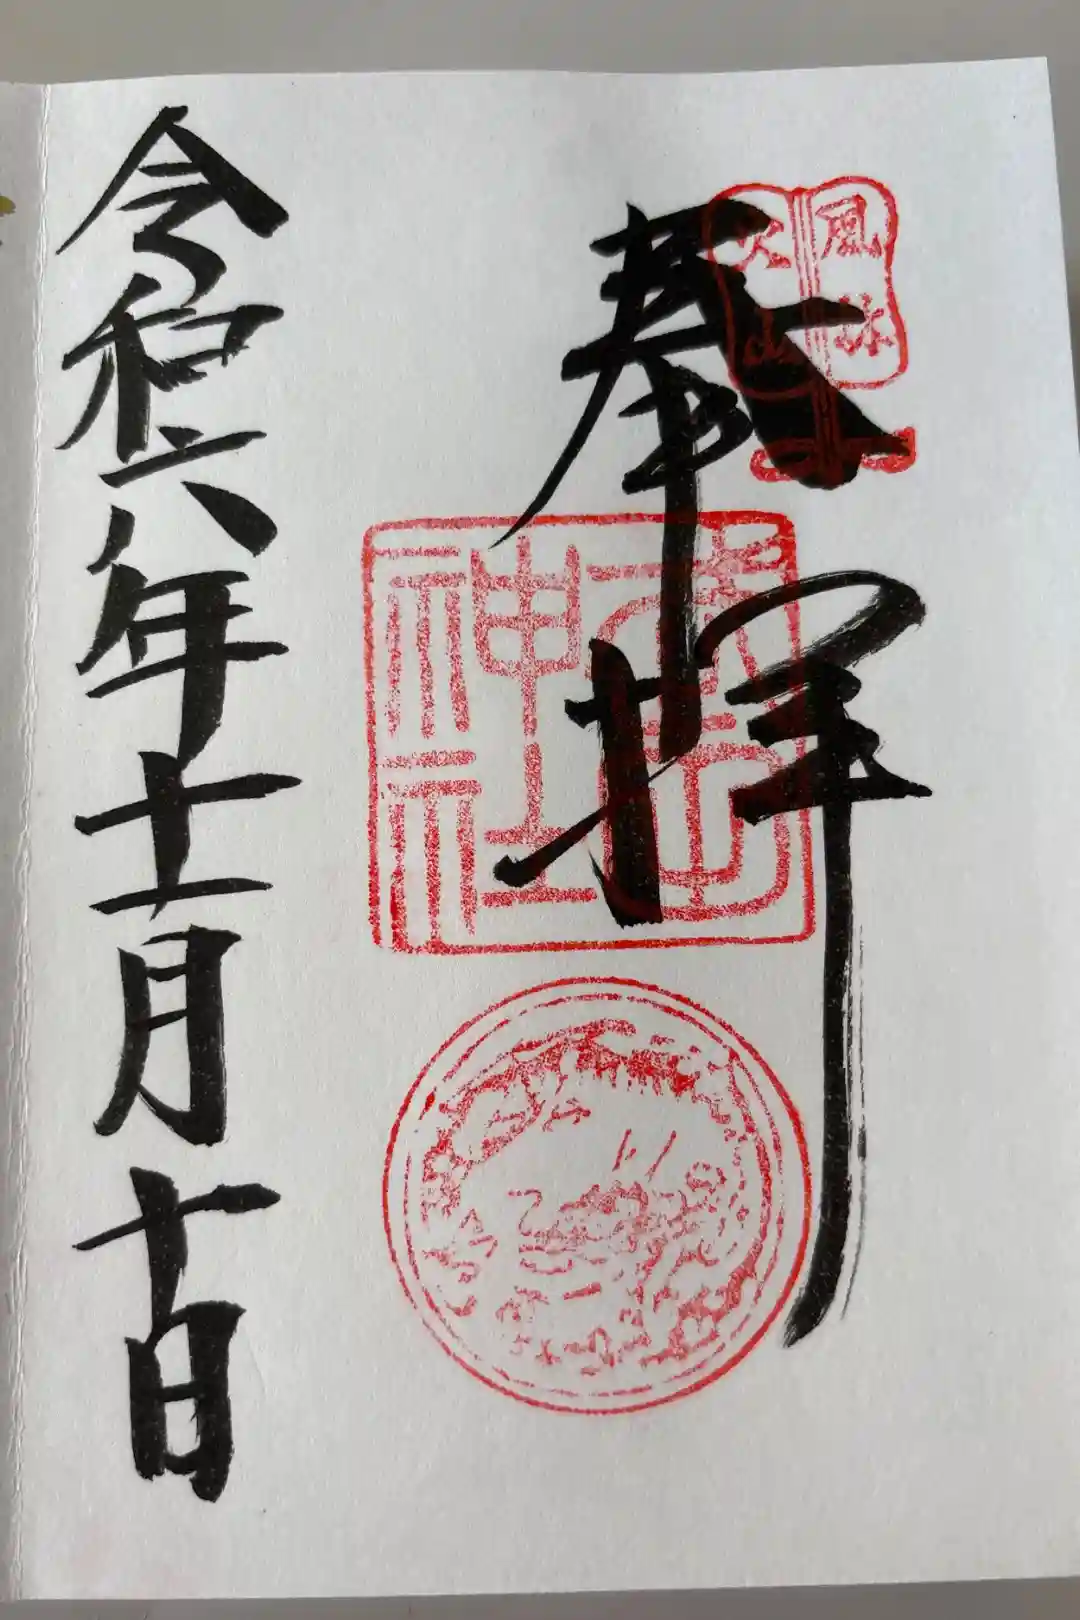 風林
火山
奉拝
神社
令和六年十一月十日